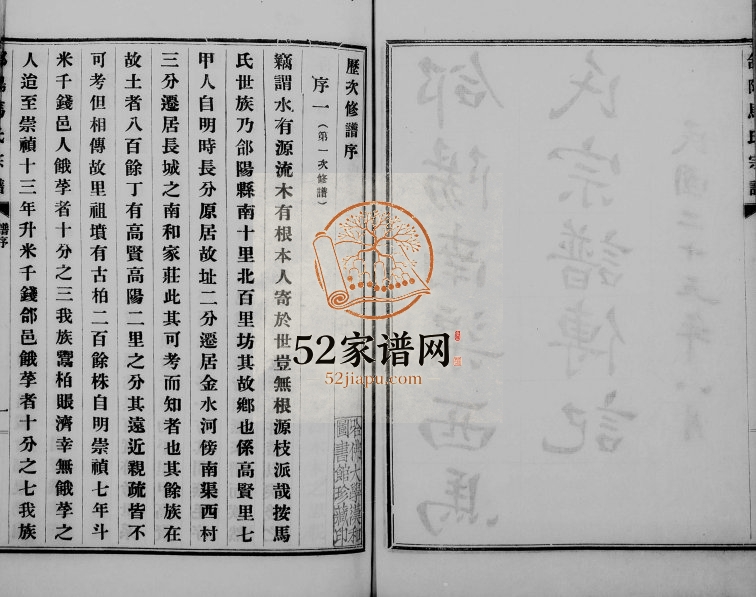 郃陽馬氏宗譜
郃陽南渠西馬
氏宗譜傳記
歷次修譜序
序一（第一次修譜）
竊謂水有源流木有根本人寄於世豈無根源枝派哉按馬
氏世族乃郃陽縣南十里北百里坊其故鄉也係高賢里七
甲人自明時長分原居故址二分遷居金水河傍南渠西村
三分遷居長城之南和家莊此其可考而知者也其餘族在
故土者八百餘丁有高賢高陽二里之分其遠近親疏皆不
可考但相傳故里祖墳有古柏二百餘株自明崇禎七年斗
米千錢邑人餓莩者十分之三我族鬻柏賑濟幸無餓莩之
人迨至崇禎十三年升米千錢郃邑餓莩者十分之七我族
哈佛大學漢和
圖書館珍藏印
譜序
一
52家谱网
52jiapu.com